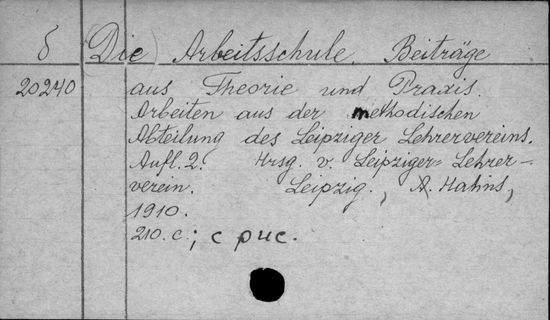 δ (Die) Arbeitsschule. Beiträge
20240 aus Theorie und Praxis.
Arbeiten aus der methodischen
Abteilung des Leipziger Lehrervereins.
Aufl. 2. Hrsg. v. Leipziger-Lehrer-
verein. Leipzig., A. Hahns,
1910.
210. c.; с рис.